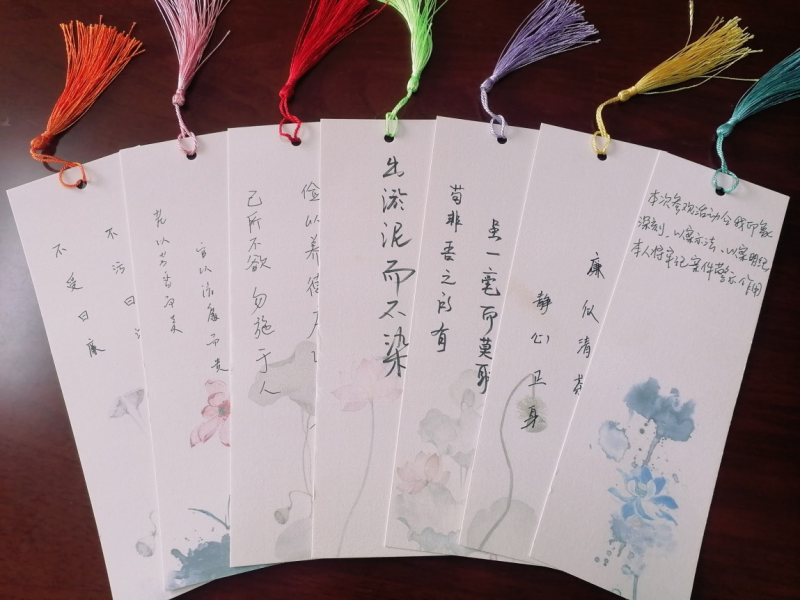 不受曰廉
不污曰
花以芳香而美
官以洁廉而贵
己所不欲 勿施于人
俭以养德
出淤泥而不染
苟非吾之所有
虽一毫而莫取
静心正身
廉似清
本次参观活动令我印象
深刻、以案示法、以案明纪
本人将牢记案件警示作用